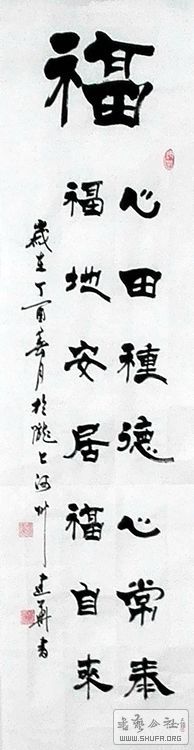 福
心田種德心常泰
福地安居福自來
歲在丁酉春月於隴上河州建華書
書法公社
WWW.SHUFA.ORG